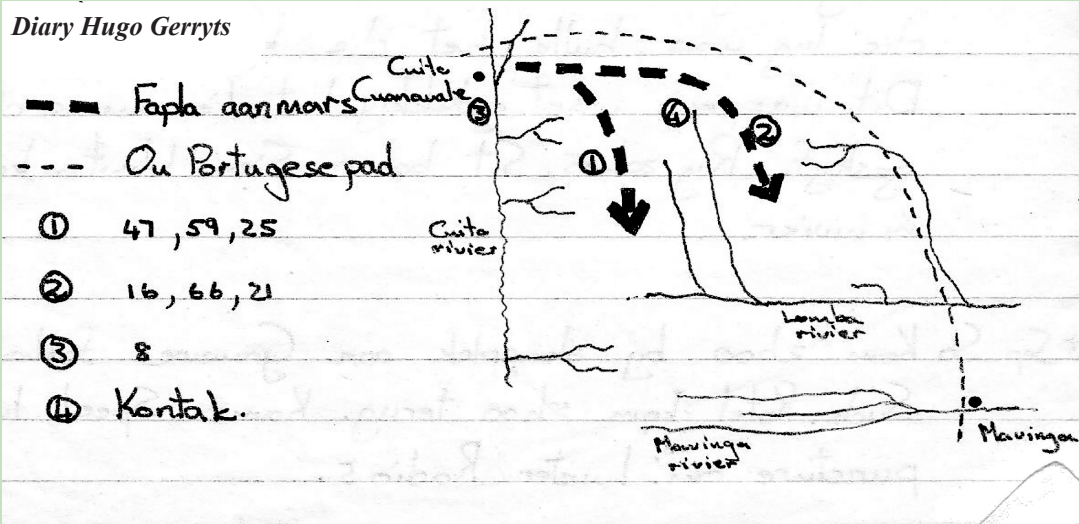 Diary Hugo Gerryts
Fapla aanmars
Ou Portugese pad
① 47, 59, 25
② 16, 66, 21
③ 8
④ Kontak.
Cuito
Cuanavale
③
④
②
①
Cuito
rivier
Lomba
rivier
Mavinga
rivier
Mavinga